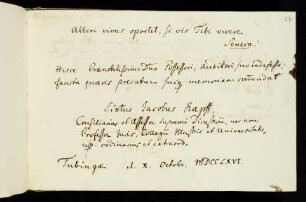 Alteri vivas oportet, si vis Tibi vivere.
Seneca.
Hisce Praenobilissimo Dno Possessori, Auditori suo
fausta quaevis precatus suiq memoriam commendat
Sixtus Jacobus Kapff,
Consiliarius et Assessor supremi Dicasterii, nec non
Professor Juris, Collegii Illustris et Universitatis,
resp. ordinarius et extraord.
Tubingae d. X. Octobr. MDCCLXVI.